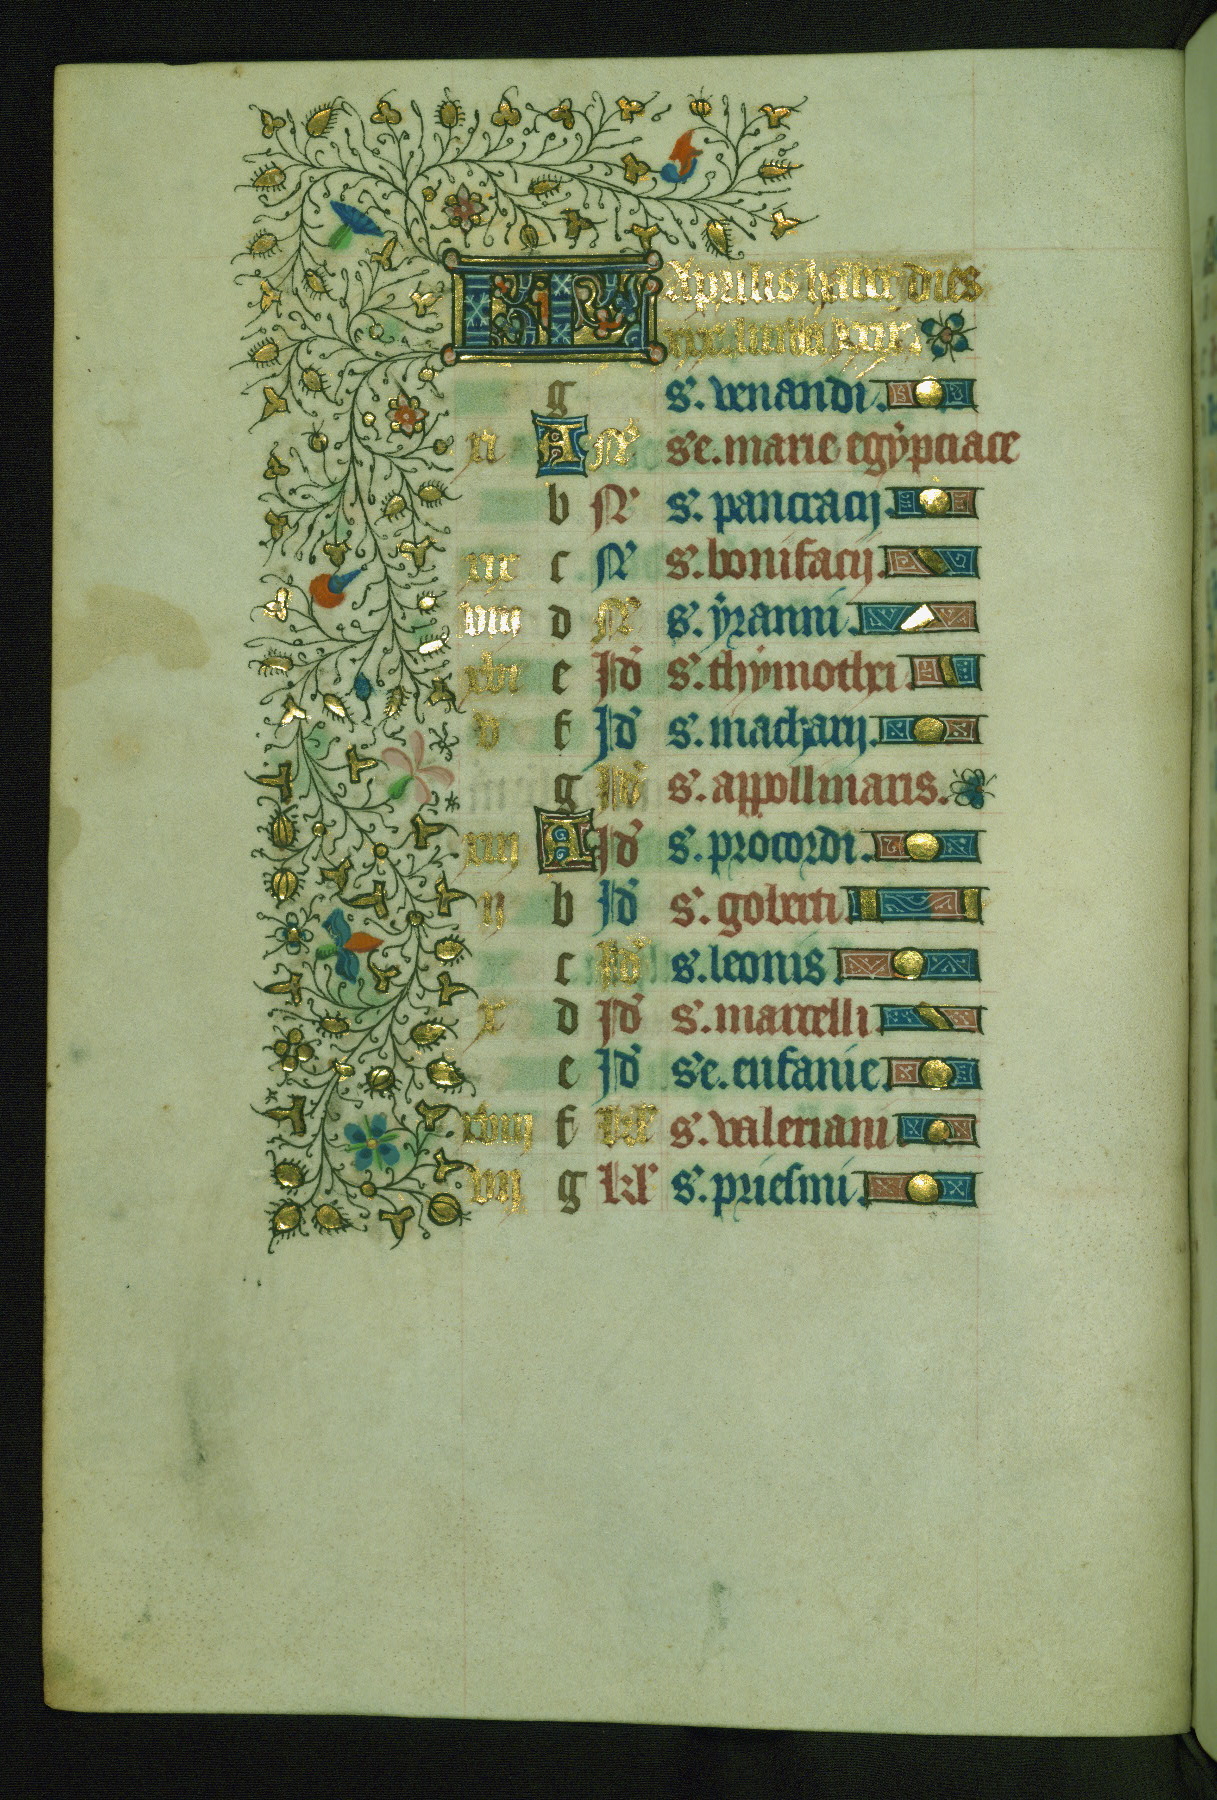 KL Aprilis habet dies
xxx. luna xxix.
g s. venandi.
xi A N^e s^e. marie egypciace
b N^e s. pancracij.
xix c N^e s. bonifacij.
viii d N^e s. yranni.
xvi e Jd^s s. thymothei.
v f Jd^s s. macharij.
g Jd^s s. appollinaris.
xiii A Jd^s s. procordi.
ij b Jd^s s. goberti
c Jd^s s. leonis
x d Jd^s s. marcelli
e Jd^s s^e. eufanie.
xviij f kl^s s. valeriani
vij g kl^s s. priesmi.